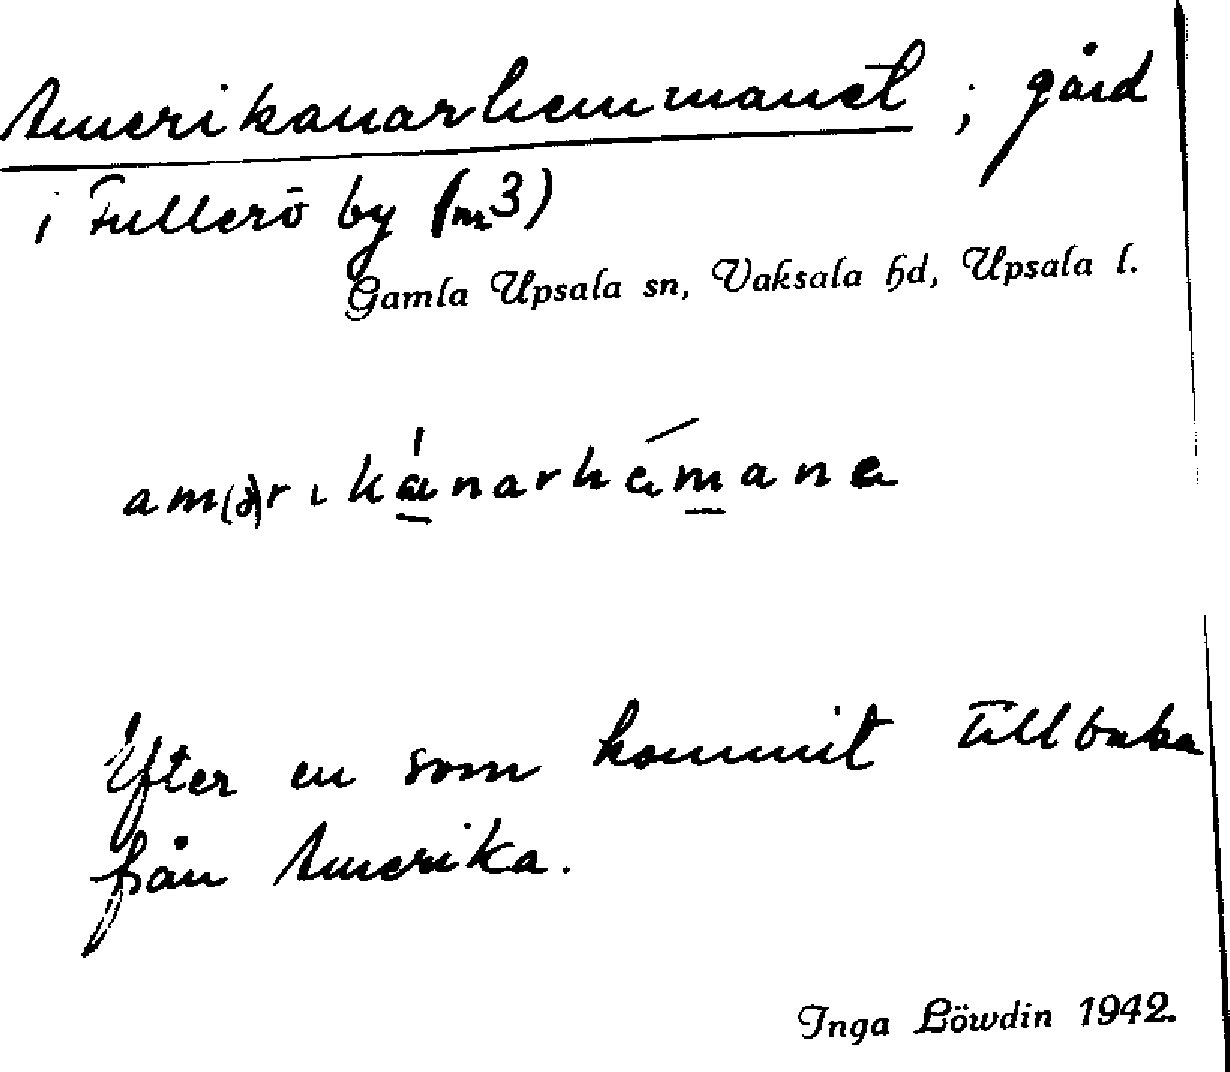 Amerikanarhemmanet ; gård
i Fullerö by (nr 3)
Gamla Upsala sn, Vaksala hd, Upsala l.
am(ə)rikánarhémana
Efter en som kommit tillbaka
från Amerika.
Inga Löwdin 1942.